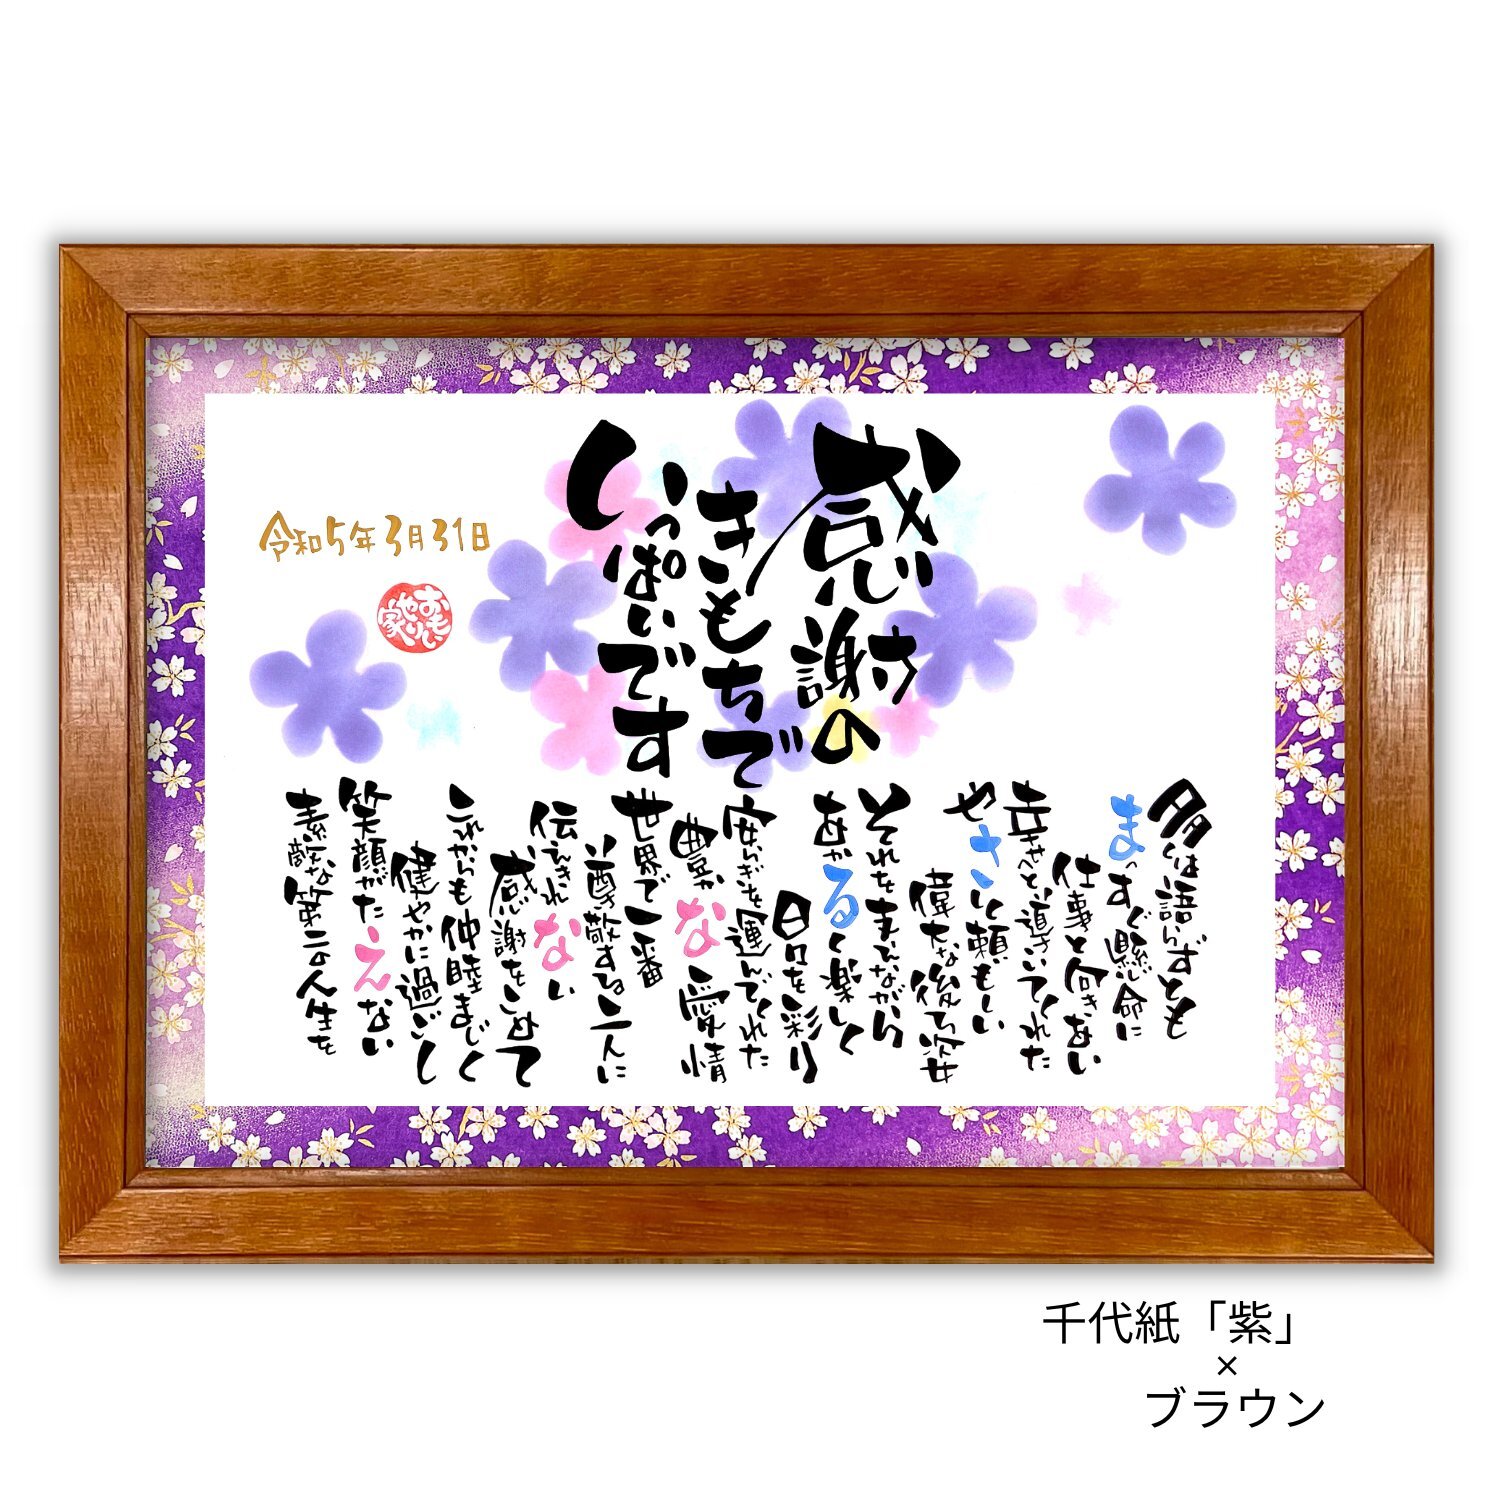 感謝の
きもちで
いっぱいです
多くは語らずとも
まっすぐ懸命に
仕事と向きあい
幸せへと導いてくれた
やさしく頼もしい
偉大な後ろ姿
それをまなびながら
あかるく楽しく
日々を彩り
安らぎを運んでくれた
豊かな愛情
世界で一番
尊敬する二人に
伝えきれない
感謝をこめて
これからも仲睦まじく
健やかに過ごし
笑顔がたえない
素敵な第二の人生を
令和5年3月31日
おもいやり家
千代紙「紫」
×
ブラウン